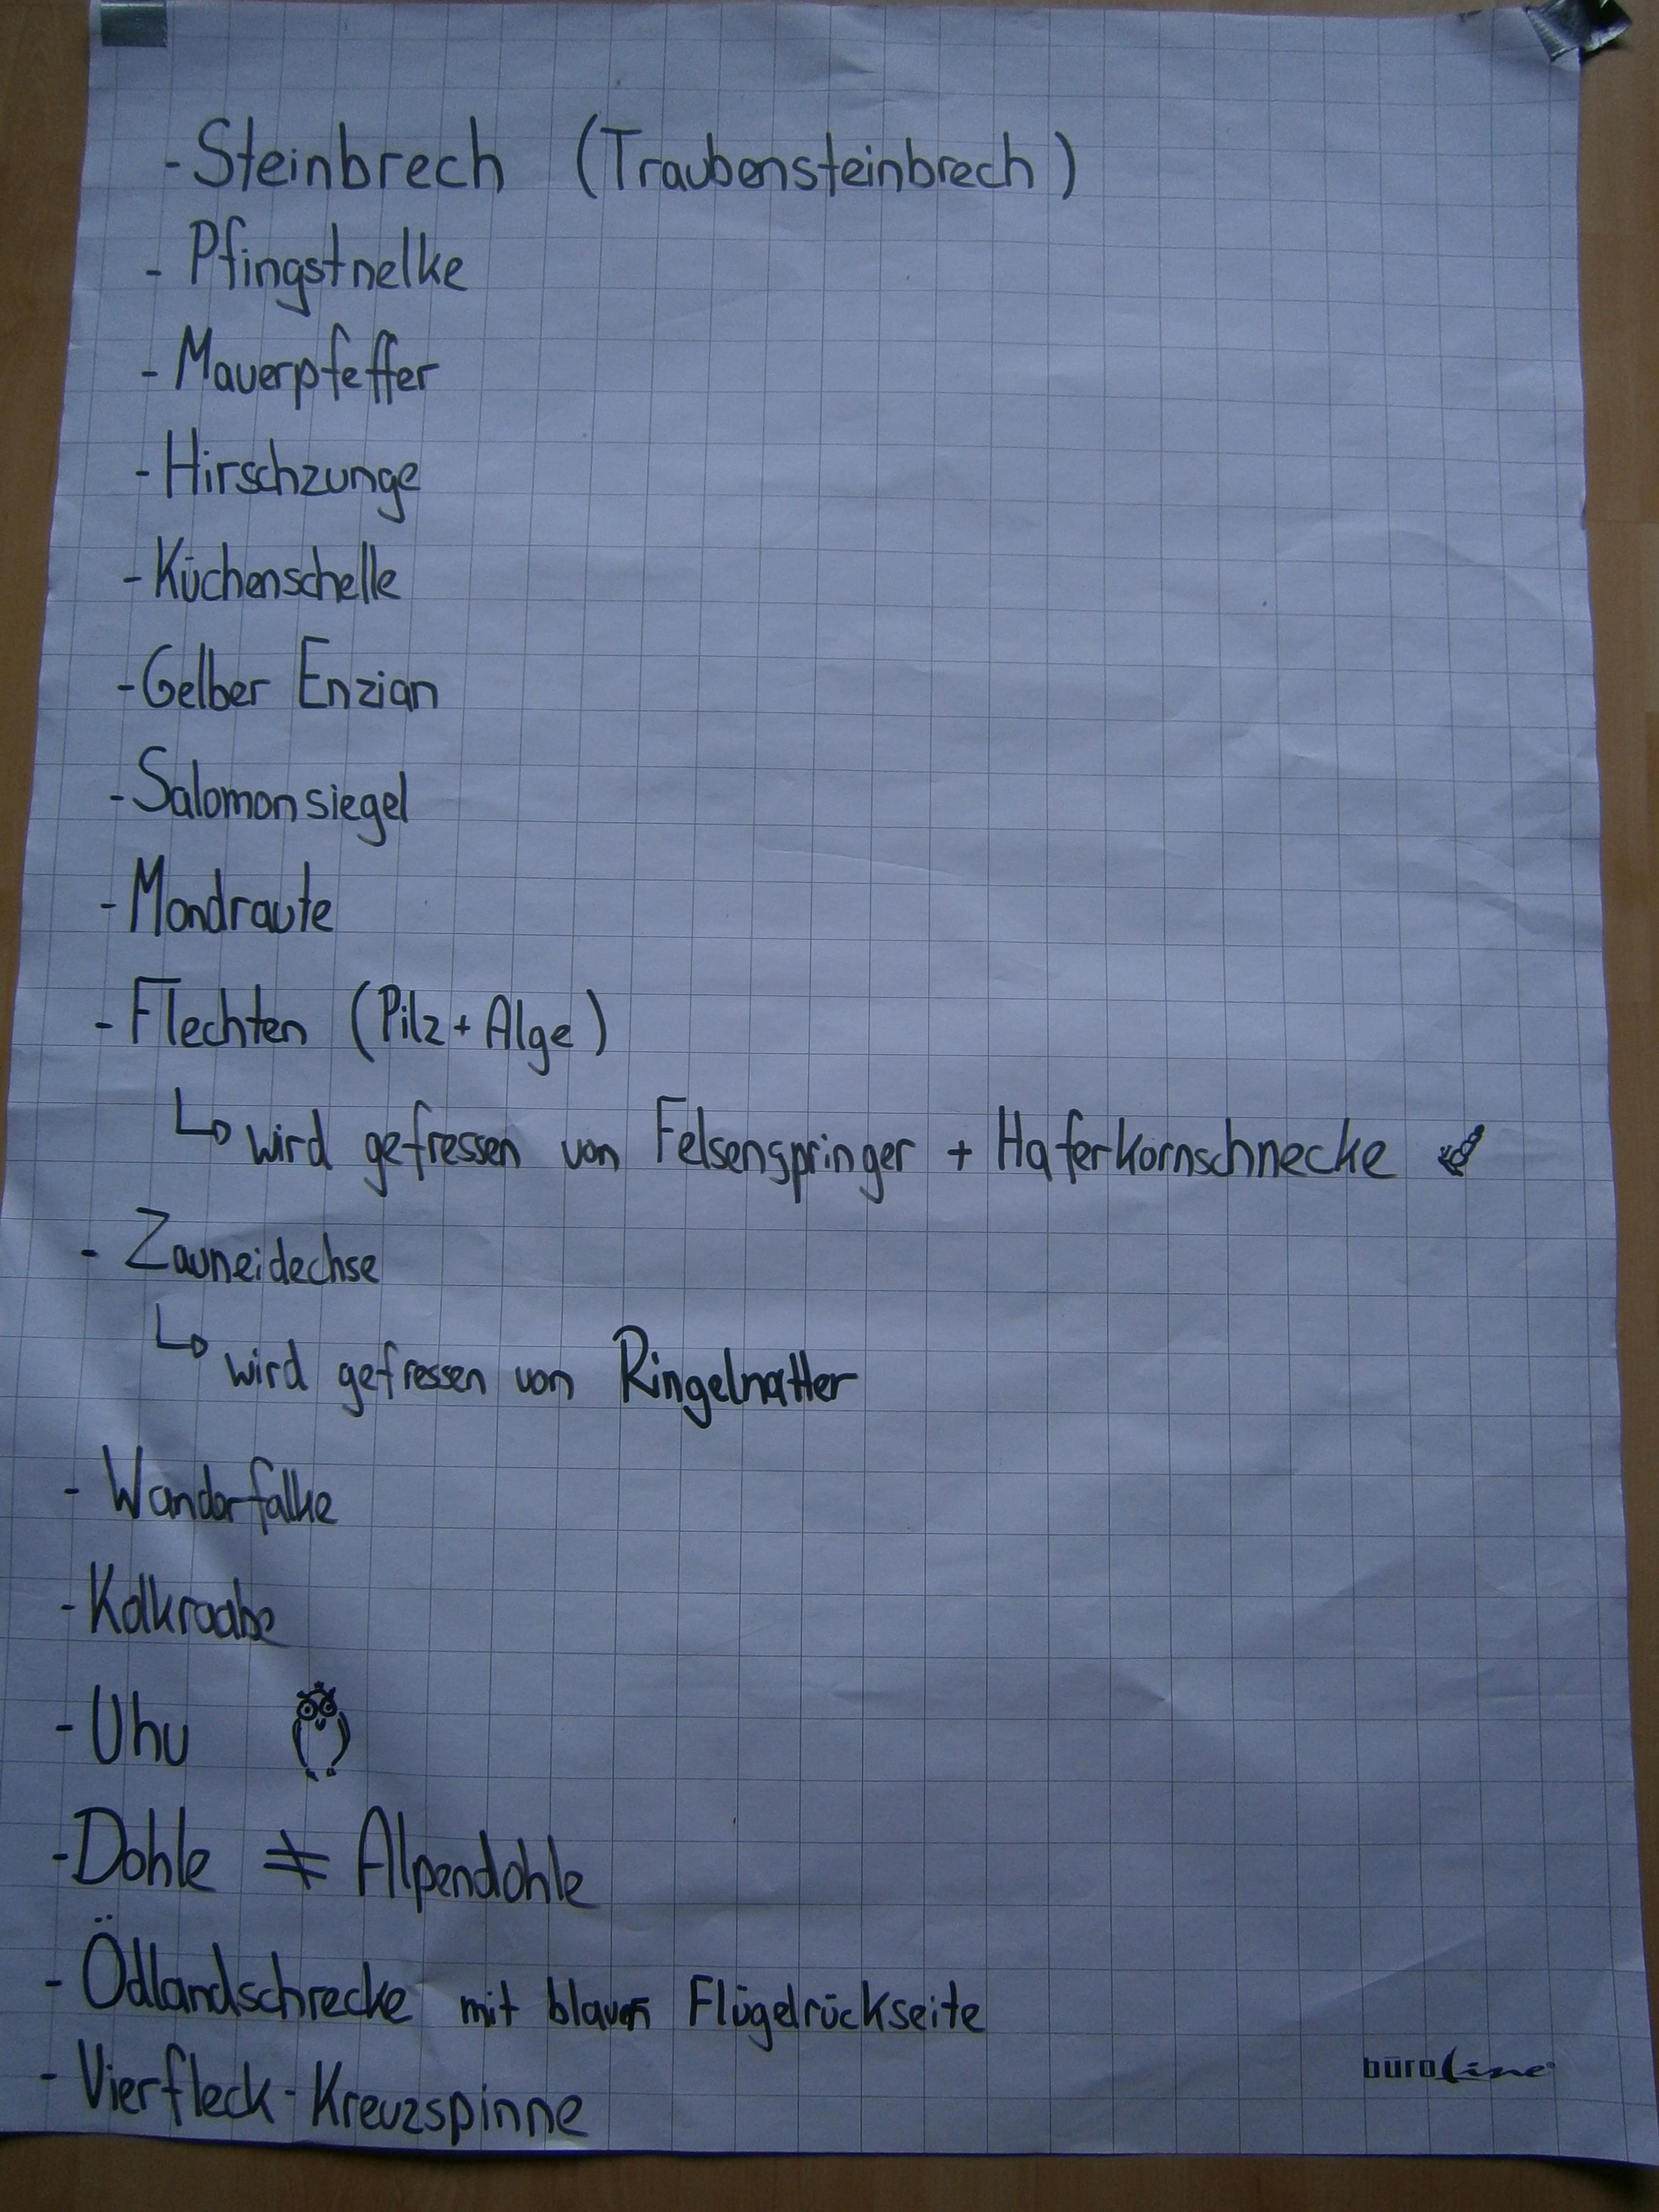 - Steinbrech (Traubensteinbrech)
- Pfingstnelke
- Mauerpfeffer
- Hirschzunge
- Küchenschelle
- Gelber Enzian
- Salomonsiegel
- Mondraute
- Flechten (Pilz + Alge)
↳ wird gefressen von Felsenspringer + Haferkornschnecke
- Zauneidechse
↳ wird gefressen von Ringelnatter
- Wanderfalke
- Kolkraabe
- Uhu
- Dohle ≠ Alpendohle
- Ödlandschrecke mit blauen Flügelrückseite
- Vierfleck-Kreuzspinne
büroline